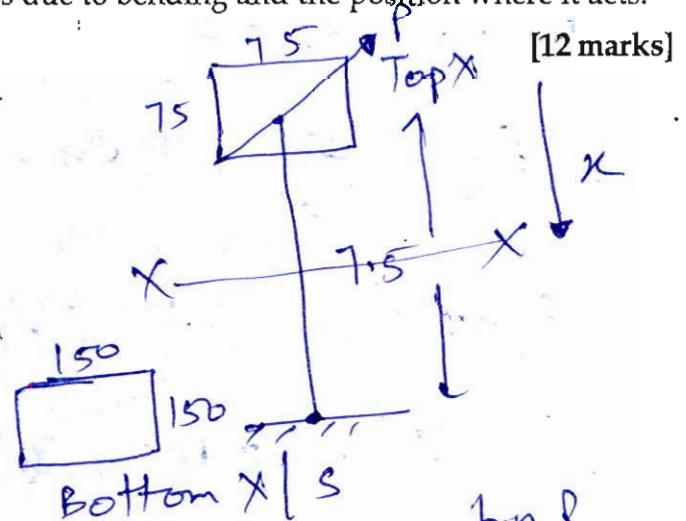 s due to bending and the position where it acts.
[12 marks]
75
P
Top X
75
x
X 7.5 X
150
150
Bottom X/S